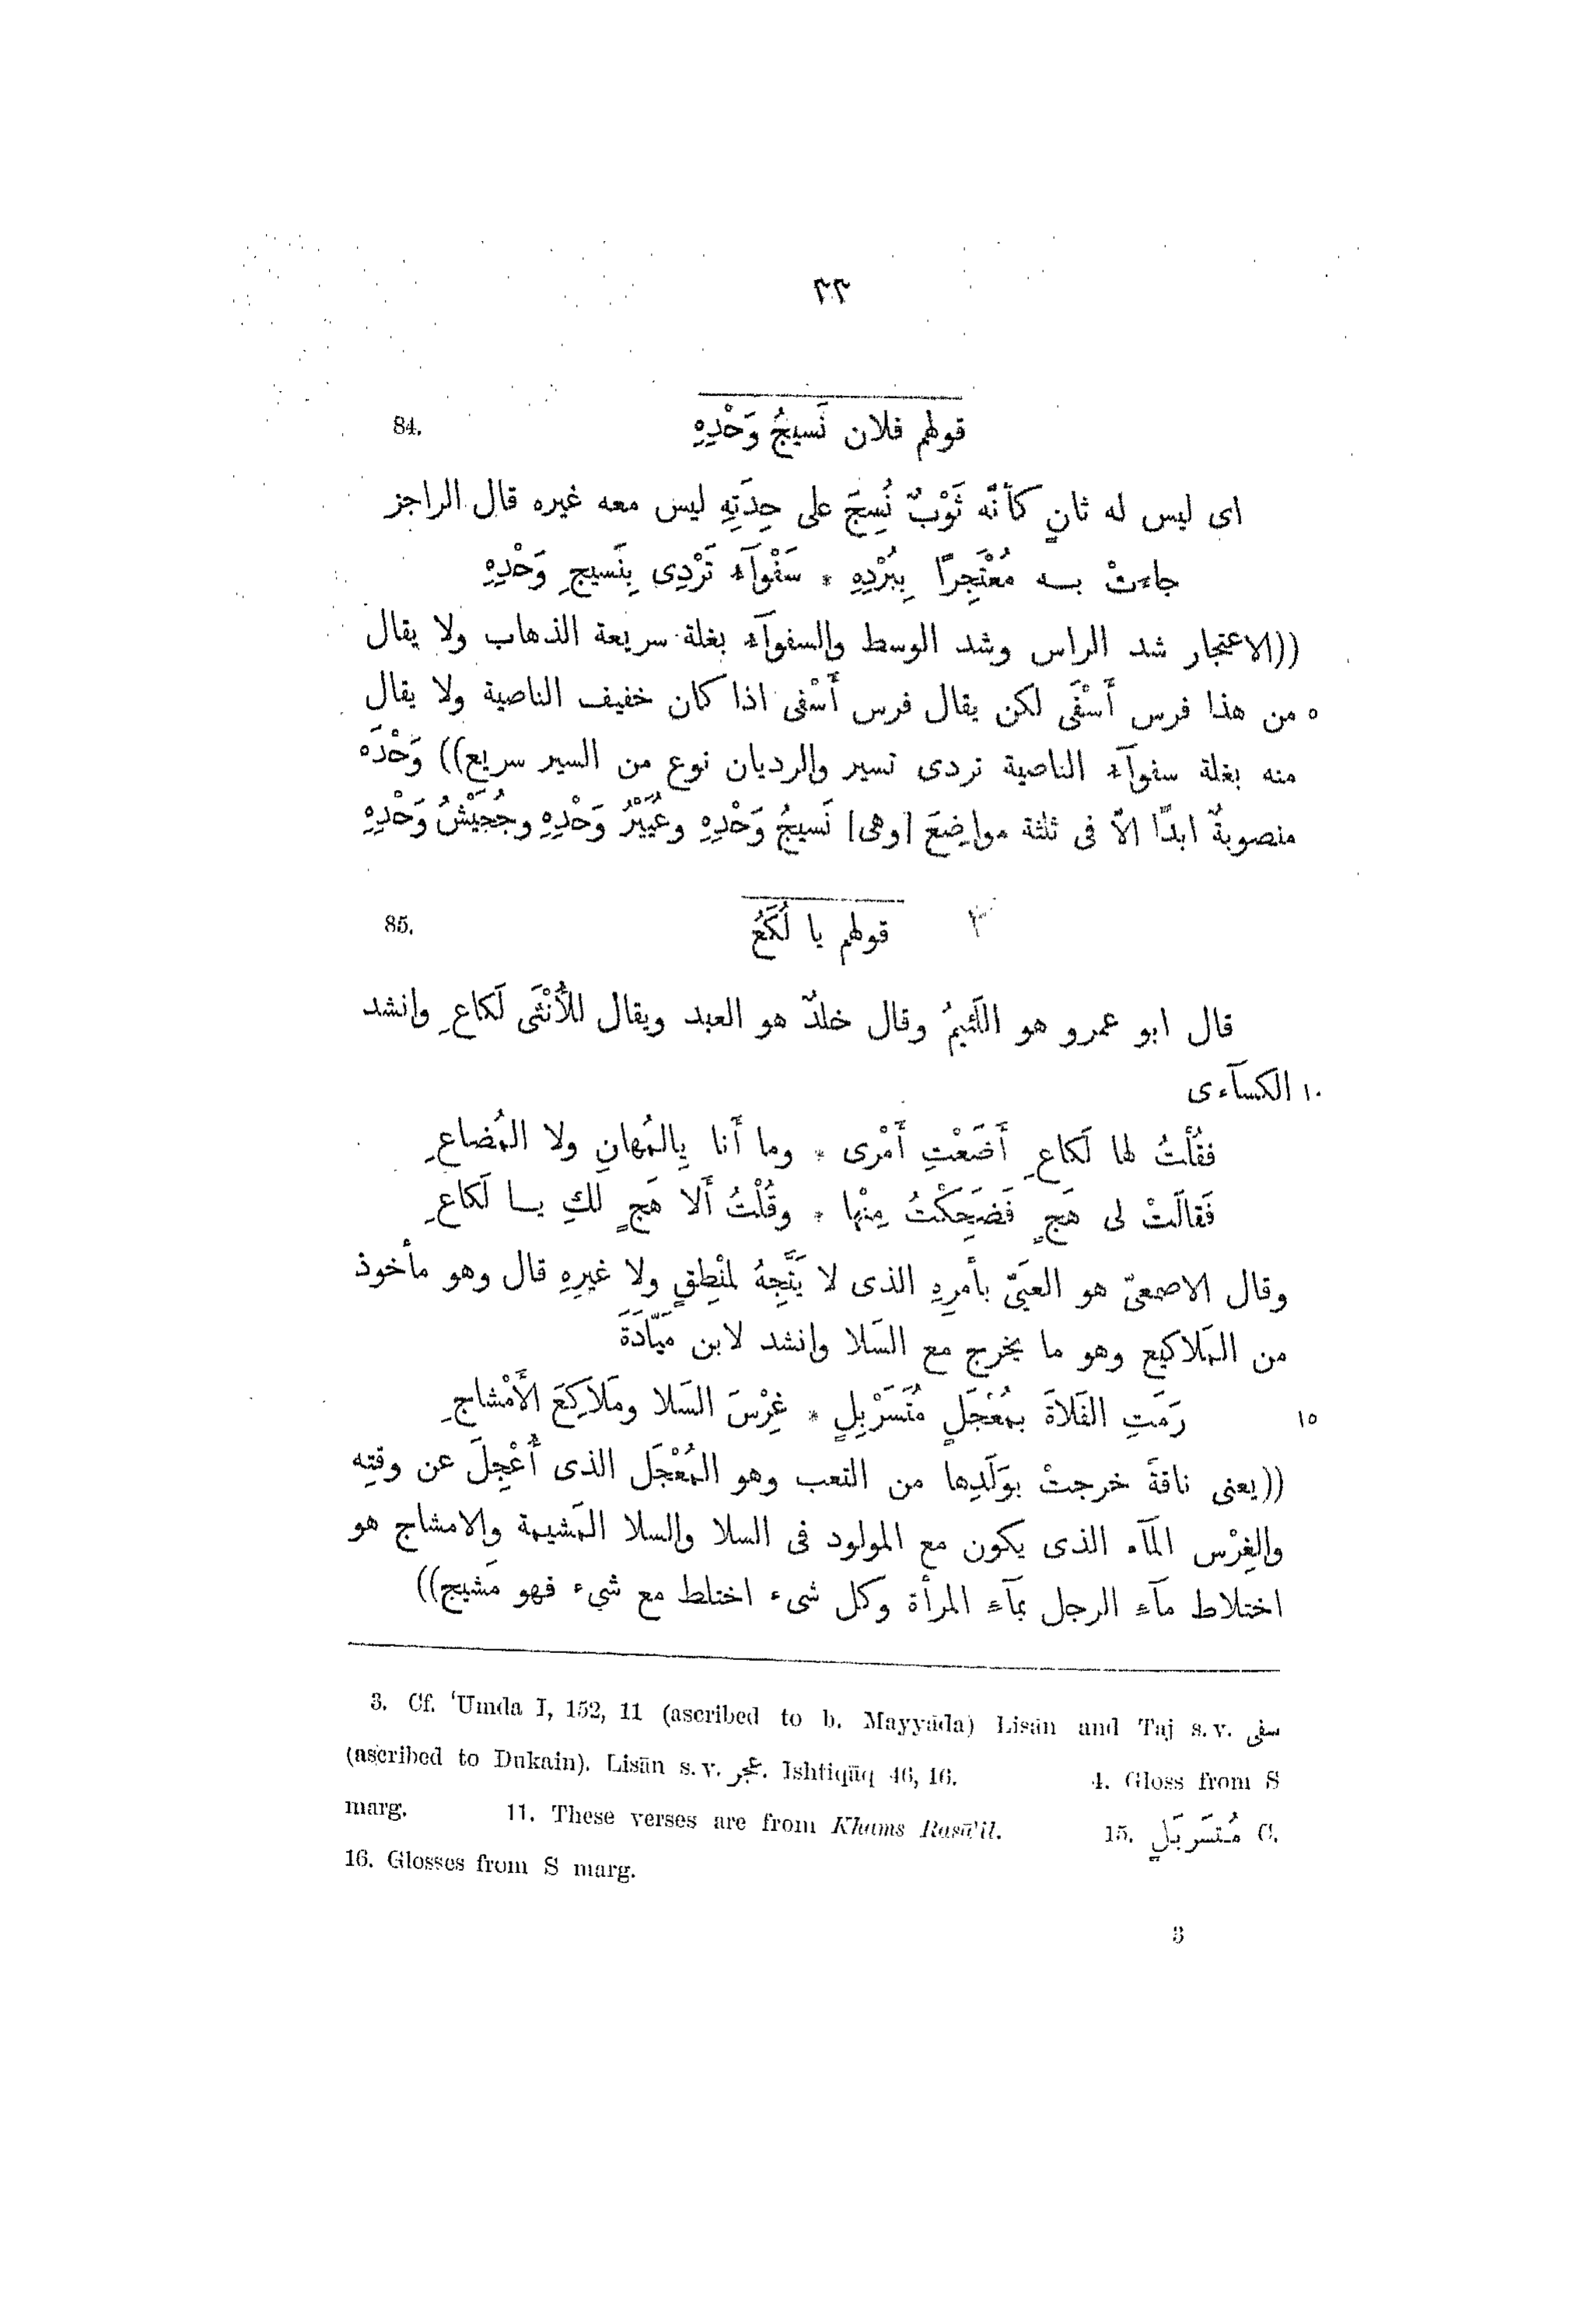 ٣٣
84. قولهم فلان نَسيجُ وَحْدِهِ
اى ليس له ثانٍ كأنّه ثَوْبٌ نُسِجَ على حِدَتِهِ ليس معه غيره قال الراجز
جاءتْ بـه مُعْتَجِرًا بِبُرْدِهِ * سَفْوآء تَرْدِى بِنَسيجِ وَحْدِهِ
((الاعتجار شد الراس وشد الوسط والسفوآء بغلة سريعة الذهاب ولا يقال
٥ من هذا فرس أَسْفَى لكن يقال فرس أَسْفى اذا كان خفيف الناصية ولا يقال
منه بغلة سفوآء الناصية تردى تسير والرديان نوع من السير سريع)) وَحْدَه
منصوبةٌ ابدًا الاّ فى ثلثة مواضِعَ [وهى] نَسيجُ وَحْدِهِ وعُيَيْرُ وَحْدِهِ وجُحَيْشُ وَحْدِهِ
85. قولهم يا لُكَعُ
قال ابو عمرو هو اللَئيمُ وقال خلدٌ هو العبد ويقال للأُنْثَى لَكاعِ وانشد
١٠ الكسآءى
فقُلْتُ لها لَكاعِ أَضَعْتِ أَمْرى * وما أَنا بِالمُهانِ ولا المُضاعِ
فَقالَتْ لى هَجٍ فَضَحِكْتُ مِنْها * وقُلْتُ أَلا هَجٍ لَكِ يـا لَكاعِ
وقال الاصمعىّ هو العَيَىّ بأمرِهِ الذى لا يَتَّجِهُ لمنْطِقٍ ولا غيرِهِ قال وهو مأخوذ
من المَلاكيع وهو ما يخرج مع السَلا وانشد لابن مَيّادَةَ
١٥ رَمَتِ الفَلاةَ بمُعْجَلٍ مُتَسَرْبِلٍ * غِرْسَ السَلا ومَلاَكِعَ الأَمْشاجِ
((يعنى ناقةَ خرجتْ بوَلَدِها من التعب وهو المُعْجَل الذى أُعْجِلَ عن وقتِه
والغِرْس المآء الذى يكون مع المولود فى السلا والسلا المَشيمة والامشاج هو
اختلاط مآء الرجل بمآء المرأة وكل شىء اختلط مع شيء فهو مَشيج))
3. Cf. ʿUmda I, 152, 11 (ascribed to b. Mayyāda) Lisān and Taj s. v. سفى
(ascribed to Dukain). Lisān s. v. عجر. Ishtiqāq 46, 16. 4. Gloss from S
marg. 11. These verses are from Khams Rasāʾil. 15. مُـتسَربَلٍ C.
16. Glosses from S marg.
3